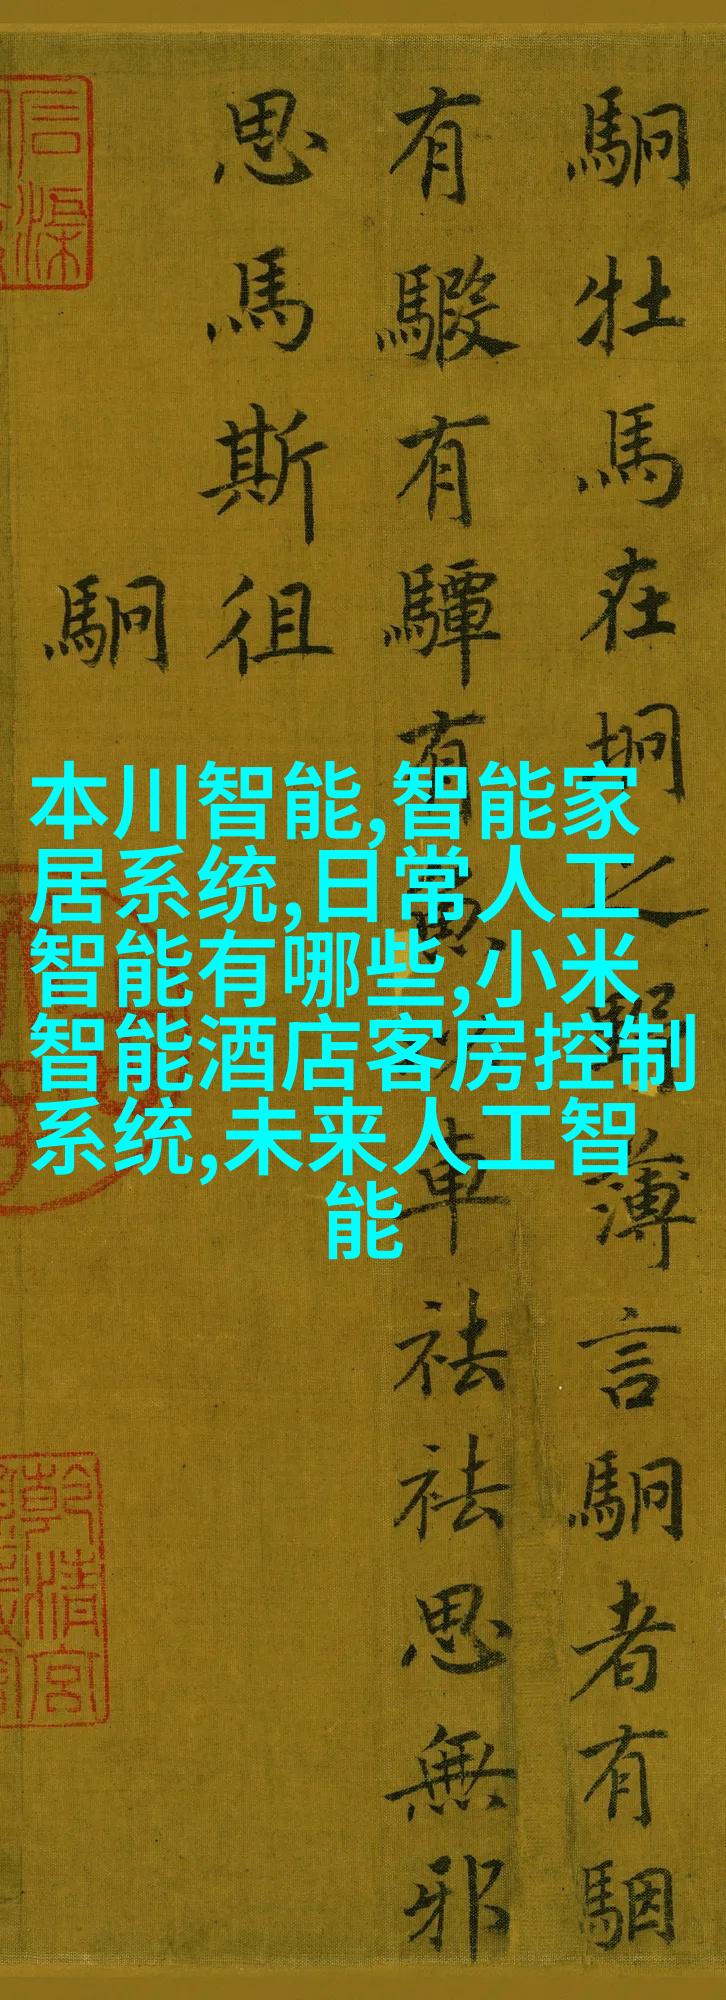 駉牡馬在坰之野薄言駉者有駰
有騢有驔有魚以車祛祛思無邪
思馬斯徂
駉
本川智能,智能家
居系统,日常人工
智能有哪些,小米
智能酒店客房控制
系统,未来人工智
能
乾清宮